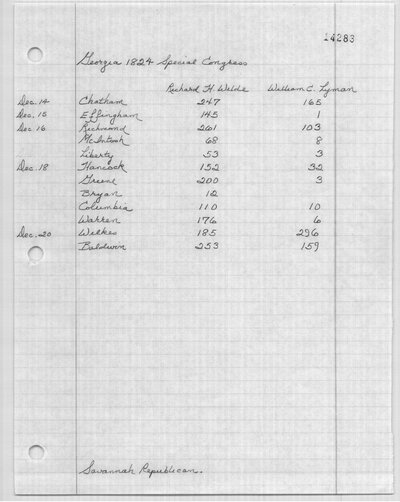 14283
Georgia 1824 Special Congress
Richard H. Wilde William C. Lyman
Dec. 14 Chatham 247 165
Dec. 15 Effingham 145 1
Dec 16 Richmond 261 103
McIntosh 68 8
Liberty 53 3
Dec. 18 Hancock 152 32
Greene 200 3
Bryan 12
Columbia 110 10
Warren 176 6
Dec. 20 Wilkes 185 296
Baldwin 253 159
Savannah Republican.